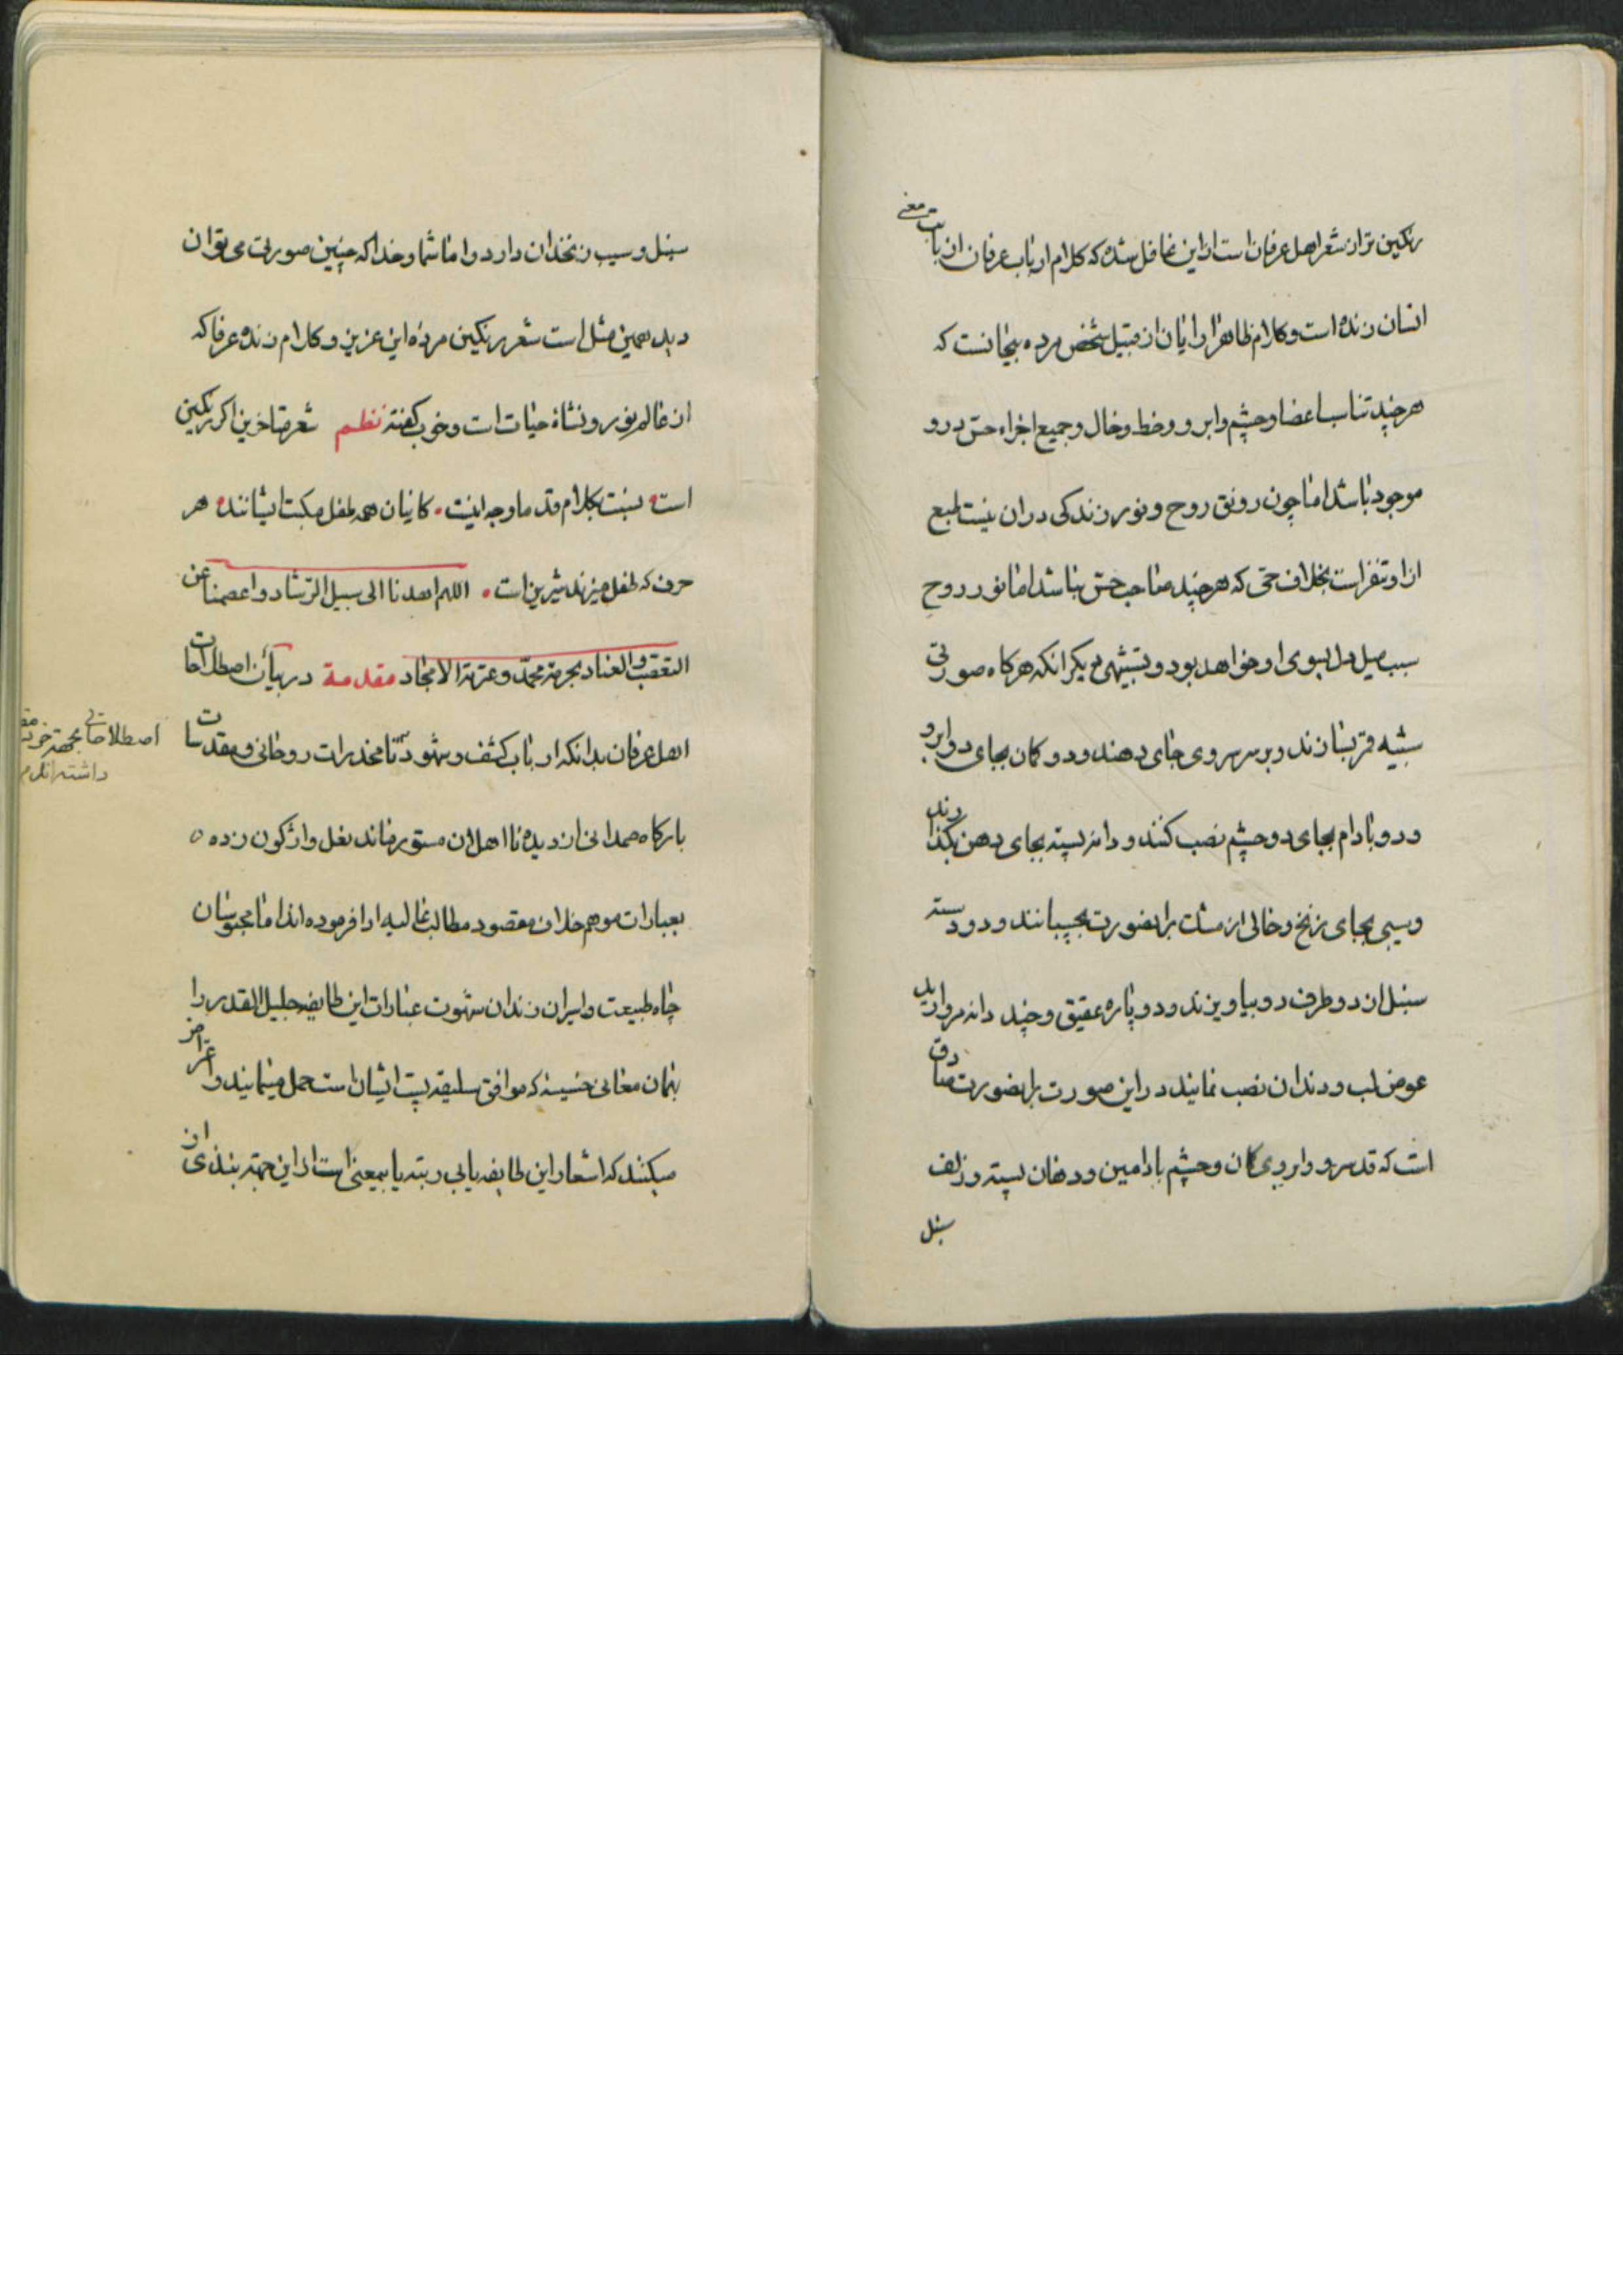 رنکین تر از شعر اهل عرفان است از این غافل شده که کلام ارباب عرفان از بابت معنی
انسان زنده است و کلام ظاهر ارایان از قبیل شخص مرده بیجانست که
هر چند تناسب اعضا و چشم و ابرو و خط و خال و جمیع اجزاء حسن در و
موجود باشد اما چون رونق روح و نور زندکی در ان نیست طبع
از او متنفر است بخلاف حی که هر چند صاحب حسن نباشد اما نور روح
سبب میل دل بسوی او خواهد بود و تشبیهی دیکر انکه هرکاه صورتی
شبیه قمر بسازند و بر سر سروی جای دهند و دو کمان بجای دو ابرو
و دو بادام بجای دو چشم نصب کنند و دانه پسته بجای دهن بگذارند
و سیبی بجای زنخ و خالی از مشک بر انصورت بچسبانند و دو دسته
سنبل از دو طرف رو بیاویزند و دو پاره عقیق و چند دانه مروارید
عوض لب و دندان نصب نمایند در این صورت بر انصورت صادق
است که قد سرو و ابروی کمان و چشم بادامین و دهان پسته و زلف
سنبل
سنبل و سیب زنخدان دارد و اما شما و خدا که چنین صورتی می توان
دید همین مثل است شعر رنکین مرده این عزیز و کلام زنده عرفا که
از عالم نور و نشاۀ حیات است و خوب کفته نظم شعر متاخرین اکر رنکین
است نسبت بکلام قدما وجه اینست کانیان همه طفل مکتب ایشانند هر
حرف که طفل میزند شیرین است اللهم اهدنا الی سبیل الرشاد و اعصمنا عن
التعصب و العناد بحرمة محمد و عترته الامجاد مقدمة در بیان اصطلاحات
اهل عرفان بدانکه ارباب کشف و شهود تا مخدرات روحانی و مقدسات
بارکاه صمدانی از دیده نا اهلان مستور ماند نعل واژکون زده
بعبارات موهم خلاف مقصود مطالب عالیه ادا فرموده اند اما محبوسان
چاه طبیعت و اسیران زندان شهوت عبارات این طایفه جلیل القدر را
بهمان معانی خسیسه که موافق سلیقه پست ایشان است حمل مینمایند و اعتراض
میکنند که اشعار این طایفه یا بی ربته یا بیمعنی است از این جهة بنده ی از
اصطلاحاتی بجهة خود
داشته اند